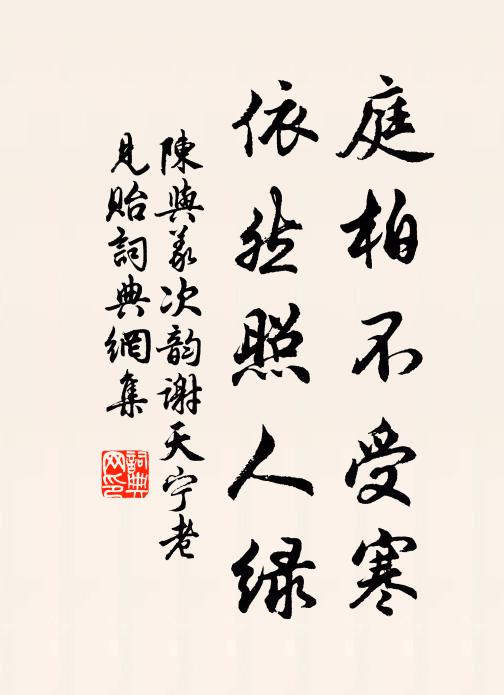 庭柏不受寒
依然照人绿
陳與義次韵谢天宁老
見贻詞典網集
詞典网印